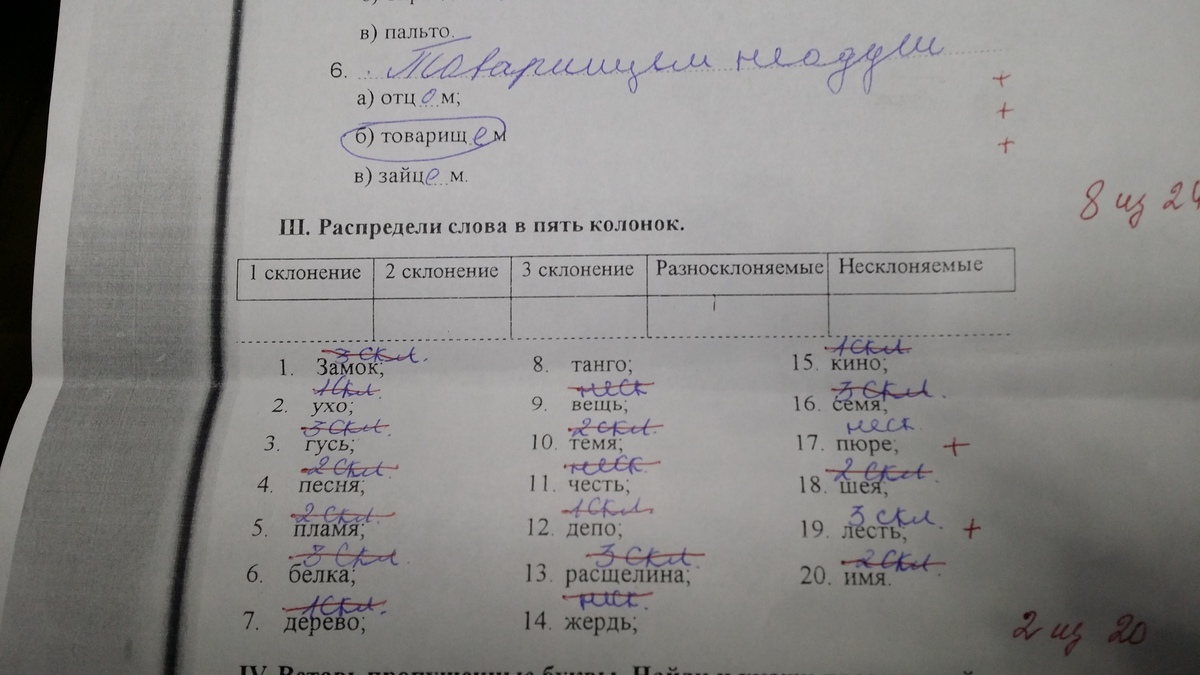 в) пальто.
6. Товарищем неодуш
а) отц о м;
+
б) товарищ е м
+
в) зайц е м.
+
8 из 24
III. Распредели слова в пять колонок.
1 склонение 2 склонение 3 склонение Разносклоняемые Несклоняемые
3 скл. 1 скл
1. Замок; 8. танго; 15. кино;
1 скл. неск 3 скл.
2. ухо; 9. вещь; 16. семя,
3 скл. 2 скл. неск.
3. гусь; 10. темя; 17. пюре; +
2 скл неск 2 скл.
4. песня; 11. честь; 18. шея,
2 скл. 1 скл. 3 скл.
5. пламя; 12. депо; 19. лесть, +
3 скл 3 скл 2 скл
6. белка; 13. расщелина; 20. имя.
1 скл. неск.
7. дерево; 14. жердь;
2 из 20